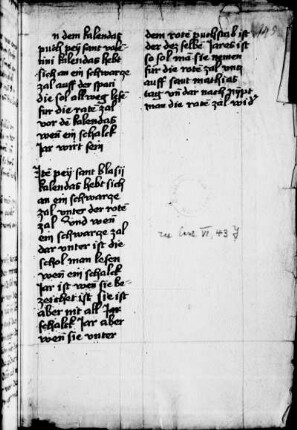 n dem kalendas
puch pey sant vale
tini kalendas hebt
sich an ein schwarze
zal auff der spaci
die sol allweg lesē
für die rote zal
vor dē kalendas
wen ein schalck
iar wirt sein
Itē pey sant blasij
kalendas hebt sich
an ein schwarze
zal vnter der rotē
zal Vnd wen
ein schwarze zal
dar vnter ist die
schol man lesen
wen ein schalck
Jar ist wen sie be-
zeichet ist Sie ist
aber nit all Jar
schalck Jar aber
wen sie vnter
dem rotē puchstab ist
der deß selbē Jares ist
so sol mā sie nemen
für die rotē zal vntz
auff sant mathias
tag vn dar nach nympt
man die rotē zal wid
cgm Cod. VI, 43